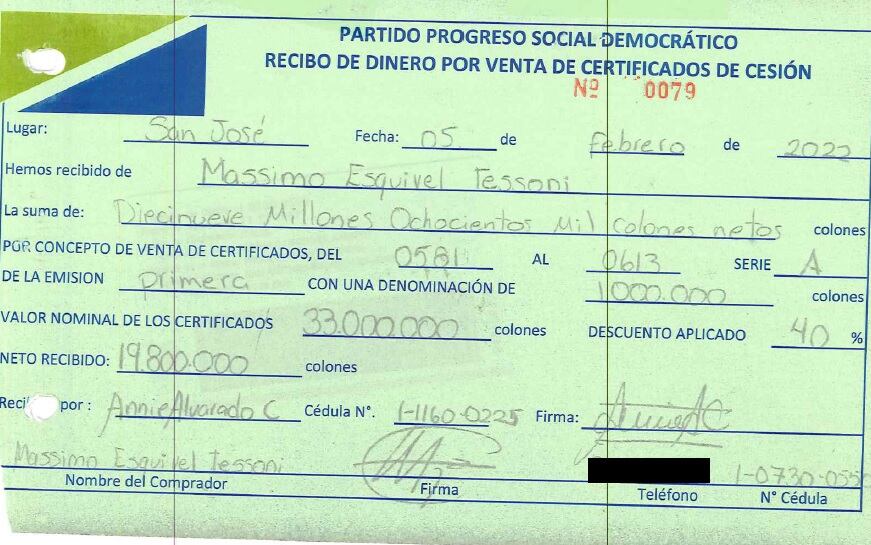 PARTIDO PROGRESO SOCIAL DEMOCRÁTICO
RECIBO DE DINERO POR VENTA DE CERTIFICADOS DE CESIÓN
Nº 0079
Lugar: San José Fecha: 05 de febrero de 2022
Hemos recibido de Massimo Esquivel Tessoni
La suma de: Diecinueve Millones Ochocientos Mil colones netos colones
POR CONCEPTO DE VENTA DE CERTIFICADOS, DEL 0581 AL 0613 SERIE A
DE LA EMISION primera CON UNA DENOMINACIÓN DE 1000.000 colones
VALOR NOMINAL DE LOS CERTIFICADOS 33.000.000 colones DESCUENTO APLICADO 40 %
NETO RECIBIDO: 19.800.000 colones
Reci por : Annie Alvarado C Cédula N°. 1-1160-0225 Firma:
Massimo Esquivel Tessoni 1-0730-055
Nombre del Comprador Firma Teléfono N° Cédula